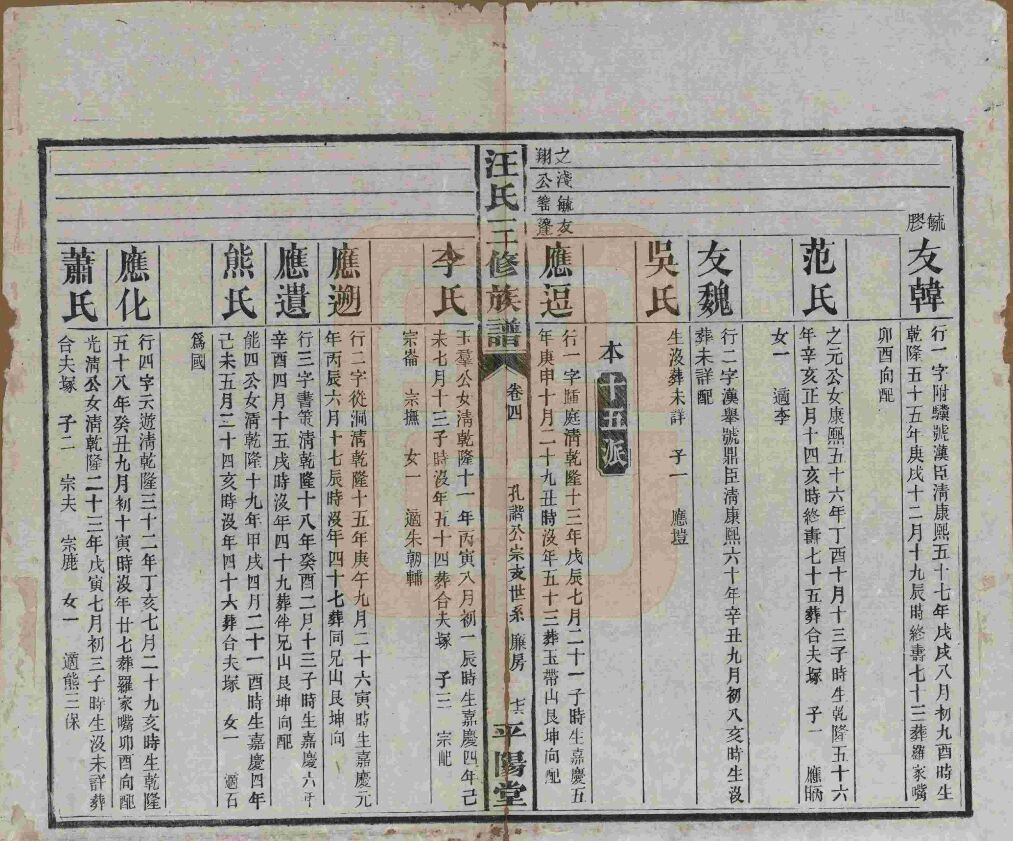 毓膠
友韓
行一字附驥號漢臣淸康熙五十七年戊戌八月初九酉時生
乾隆五十五年庚戌十二月十九辰時終壽七十三葬羅家嘴
卯酉向配
范氏
之元公女康熙五十六年丁酉十月十三子時生乾隆五十六
年辛亥正月十四亥時終壽七十五葬合夫塚 子一 應昞
女一 適李
友魏
行二字漢舉號鼎臣淸康熙六十年辛丑九月初八亥時生沒
葬未詳配
吳氏
生沒葬未詳 子一 應塏
本十五派
之淺毓友
翔公
應逗
行一字踵庭淸乾隆十三年戊辰七月二十一子時生嘉慶五
年庚申十月二十九丑時沒年五十三葬玉帶山艮坤向配
汪氏三修族譜
卷四
孔諧公宗支世系 廉房
平陽堂
李氏
玉羣公女淸乾隆十一年丙寅八月初一辰時生嘉慶四年己
未七月十三子時沒年五十四葬合夫塚 子三 宗屺
宗崙 宗撫 女一 適朱朝輔
應遡
行二字從澗淸乾隆十五年庚午九月二十六寅時生嘉慶元
年丙辰六月十七辰時沒年四十七葬同兄山艮坤向
應遺
行三字書策淸乾隆十八年癸酉二月十三子時生嘉慶六年
辛酉四月十五戌時沒年四十九葬伴兄山艮坤向配
熊氏
能四公女淸乾隆十九年甲戌四月二十一酉時生嘉慶四年
己未五月二十四亥時沒年四十六葬合夫塚 女一 適石
爲國
應化
行四字天遊淸乾隆三十二年丁亥七月二十九亥時生乾隆
五十八年癸丑九月初十寅時沒年廿七葬羅家嘴卯酉向配
蕭氏
光淸公女淸乾隆二十三年戊寅七月初三子時生沒未詳葬
合夫塚 子二 宗夫 宗鹿 女一 適熊三保